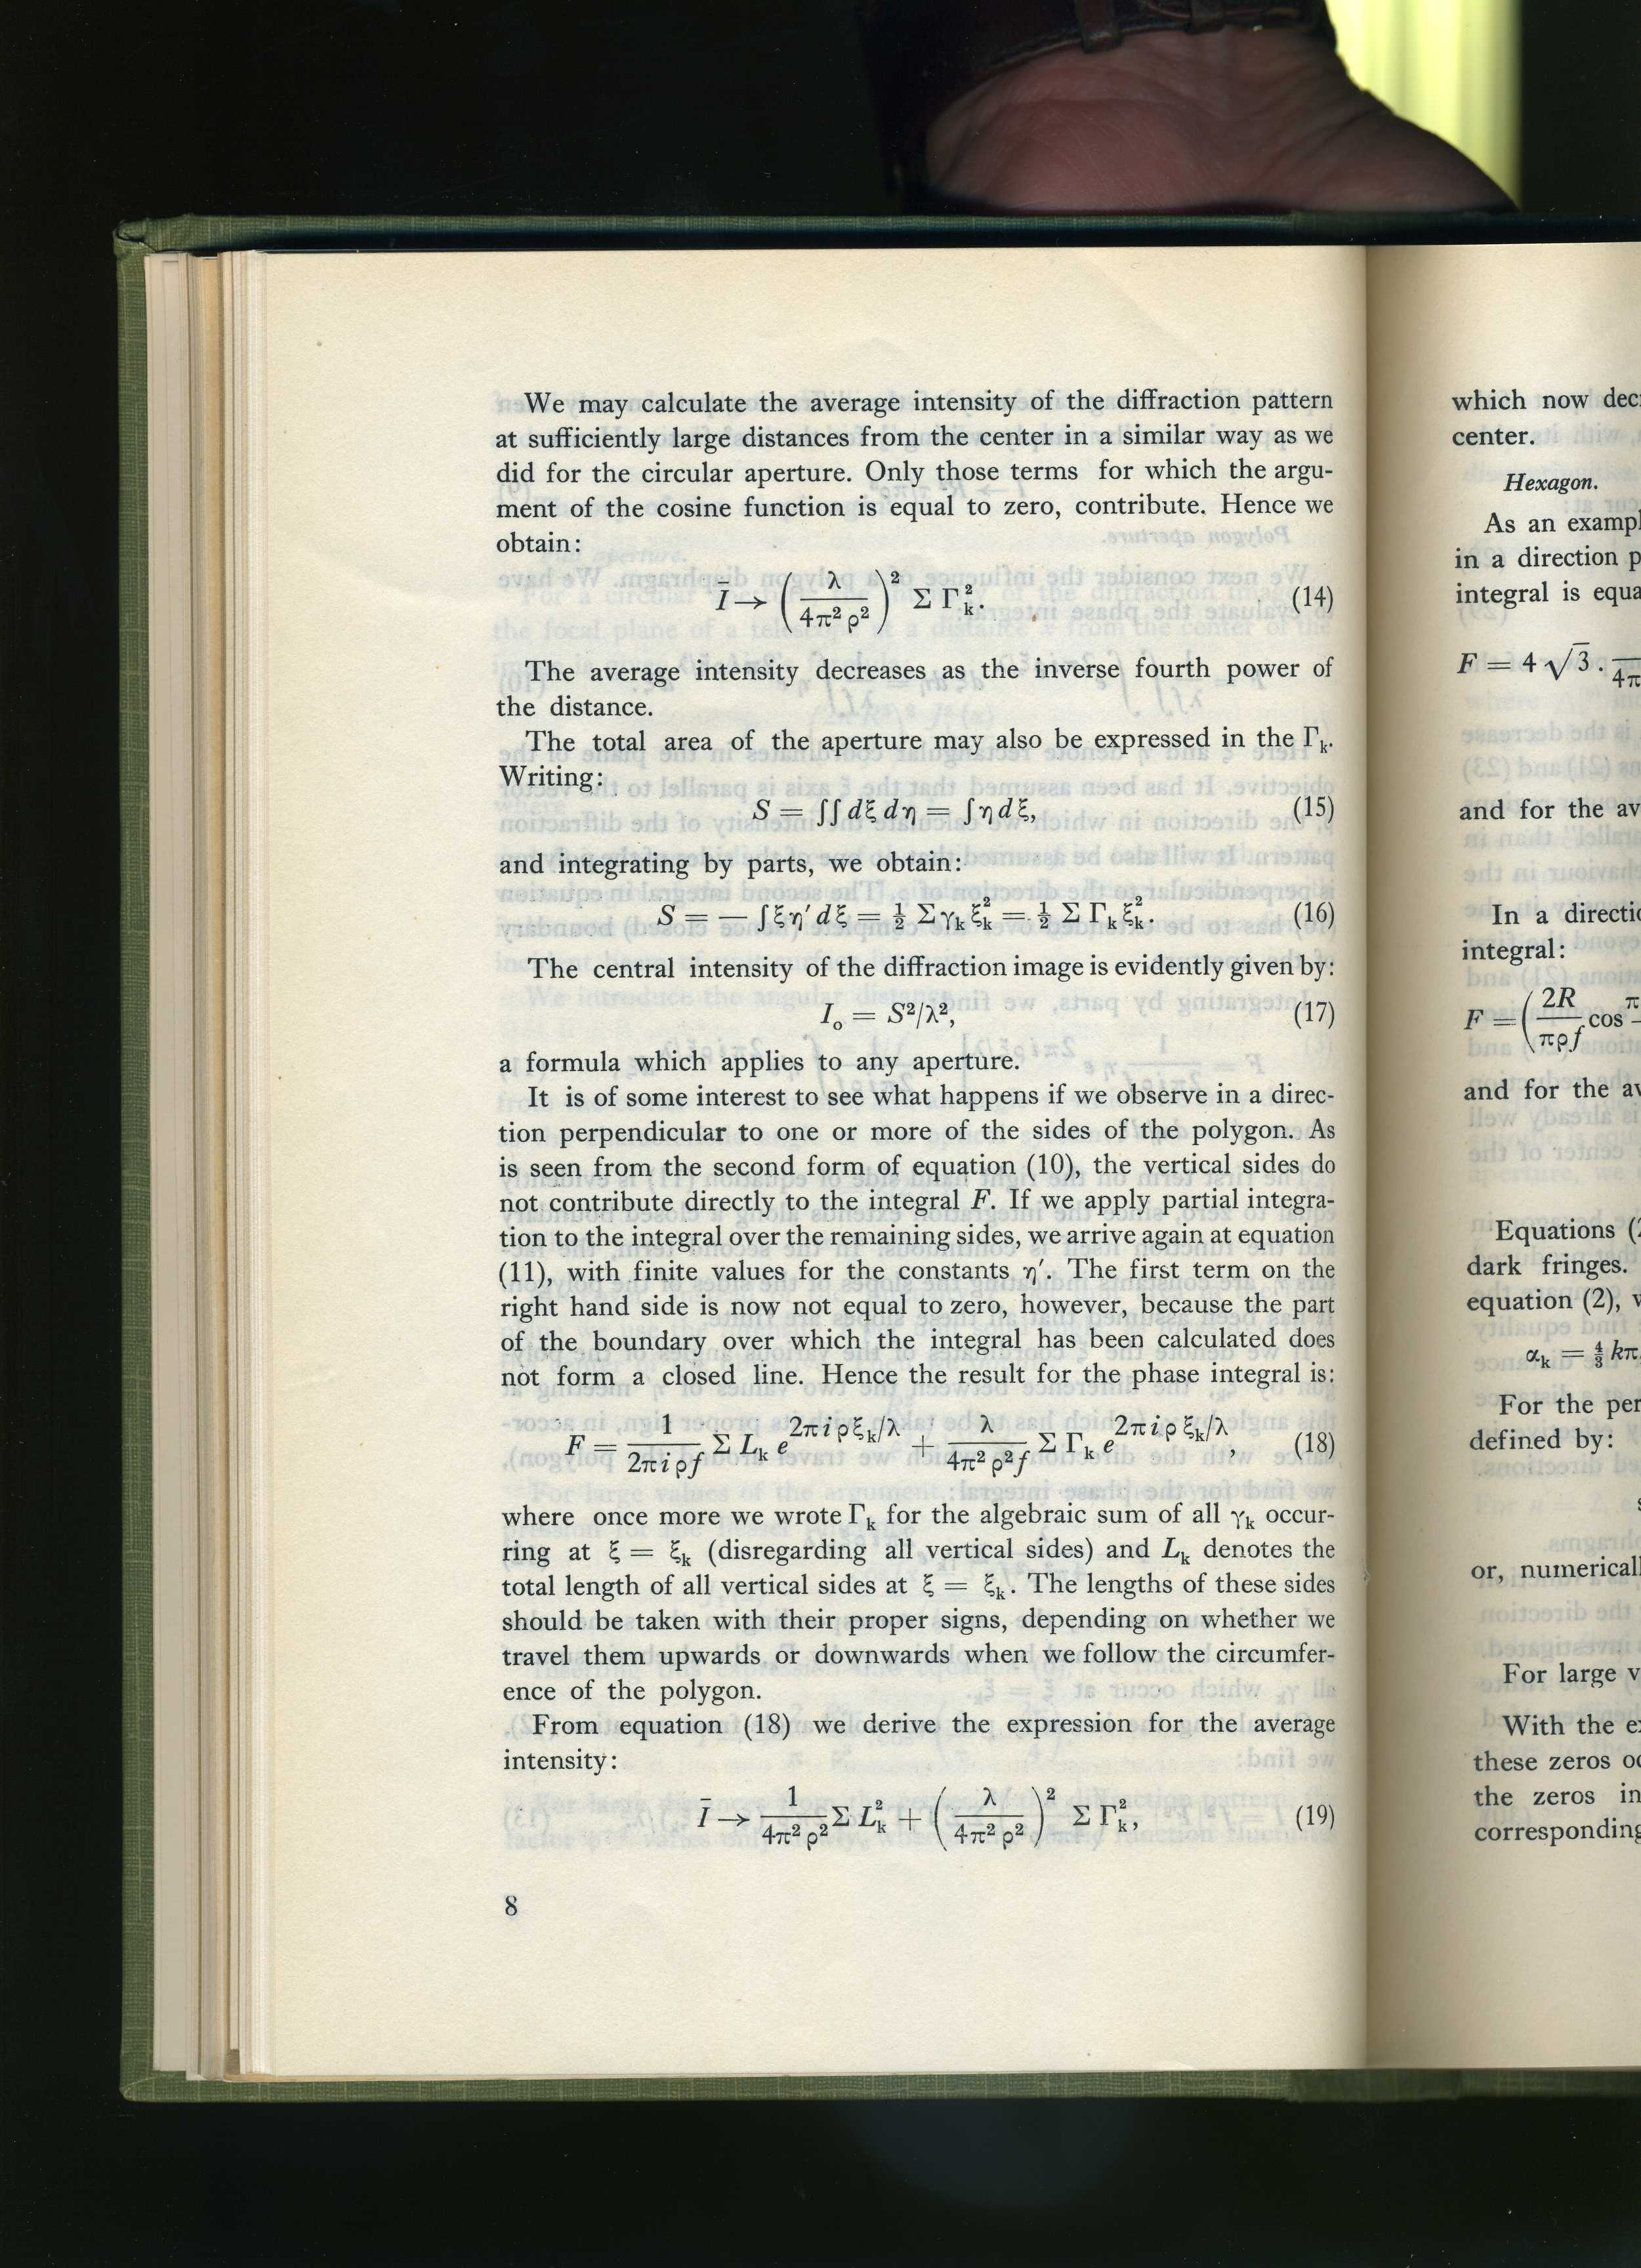 We may calculate the average intensity of the diffraction pattern
at sufficiently large distances from the center in a similar way as we
did for the circular aperture. Only those terms for which the argu-
ment of the cosine function is equal to zero, contribute. Hence we
obtain:
Ī → ( λ / 4π² ρ² )² Σ Γₖ². (14)
The average intensity decreases as the inverse fourth power of
the distance.
The total area of the aperture may also be expressed in the Γₖ.
Writing:
S = ∫∫ dξ dη = ∫ η dξ, (15)
and integrating by parts, we obtain:
S = — ∫ ξ η′ dξ = ½ Σ γₖ ξₖ² = ½ Σ Γₖ ξₖ². (16)
The central intensity of the diffraction image is evidently given by:
I₀ = S²/λ², (17)
a formula which applies to any aperture.
It is of some interest to see what happens if we observe in a direc-
tion perpendicular to one or more of the sides of the polygon. As
is seen from the second form of equation (10), the vertical sides do
not contribute directly to the integral F. If we apply partial integra-
tion to the integral over the remaining sides, we arrive again at equation
(11), with finite values for the constants η′. The first term on the
right hand side is now not equal to zero, however, because the part
of the boundary over which the integral has been calculated does
not form a closed line. Hence the result for the phase integral is:
F = 1 / 2π i ρ f Σ Lₖ e^{2π i ρ ξₖ/λ} + λ / 4π² ρ² f Σ Γₖ e^{2π i ρ ξₖ/λ}, (18)
where once more we wrote Γₖ for the algebraic sum of all γₖ occur-
ring at ξ = ξₖ (disregarding all vertical sides) and Lₖ denotes the
total length of all vertical sides at ξ = ξₖ. The lengths of these sides
should be taken with their proper signs, depending on whether we
travel them upwards or downwards when we follow the circumfer-
ence of the polygon.
From equation (18) we derive the expression for the average
intensity:
Ī → 1 / 4π² ρ² Σ Lₖ² + ( λ / 4π² ρ² )² Σ Γₖ², (19)
8
which now
center.
Hexagon.
As an
in a direction
integral is
F = 4 √3 .
and for the
In a
integral:
F = ( 2R / πρf cos
and for the
Equations
dark fringes.
equation (2),
αₖ = 4/3 kπ
For the
defined by:
or,
For large
With the
these zeros
the zeros in